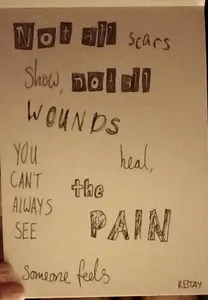 Not all scars
show, not all
WOUNDS
heal,
YOU
CAN'T
ALWAYS
SEE
the
PAIN
someone feels